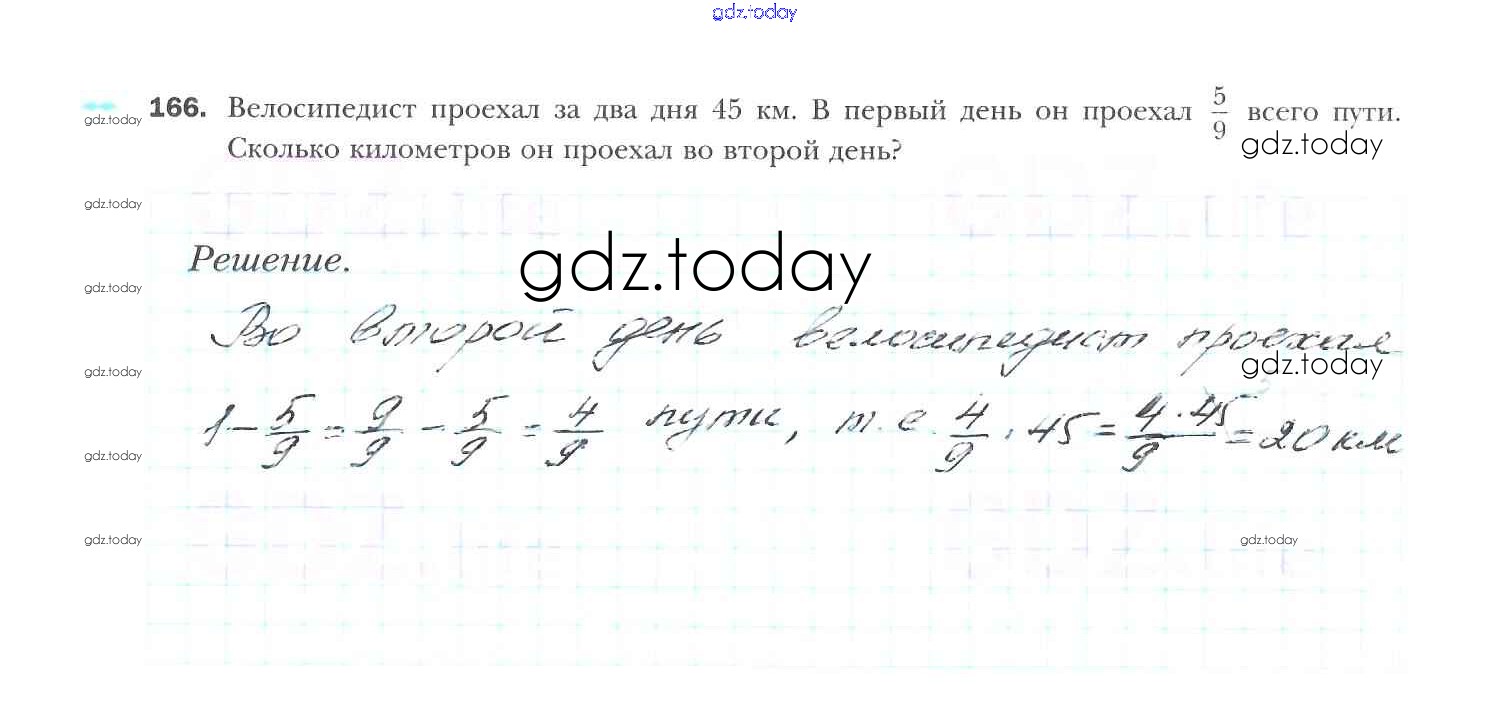 gdz.today
166. Велосипедист проехал за два дня 45 км. В первый день он проехал 5/9 всего пути.
gdz.today
Сколько километров он проехал во второй день?
gdz.today
gdz.today
Решение.
gdz.today
gdz.today
Во второй день велосипедист проехал
gdz.today
gdz.today
1 - 5/9 = 9/9 - 5/9 = 4/9 пути, т.е. 4/9 · 45 = 4·45/9 = 20 км
gdz.today
gdz.today
gdz.today